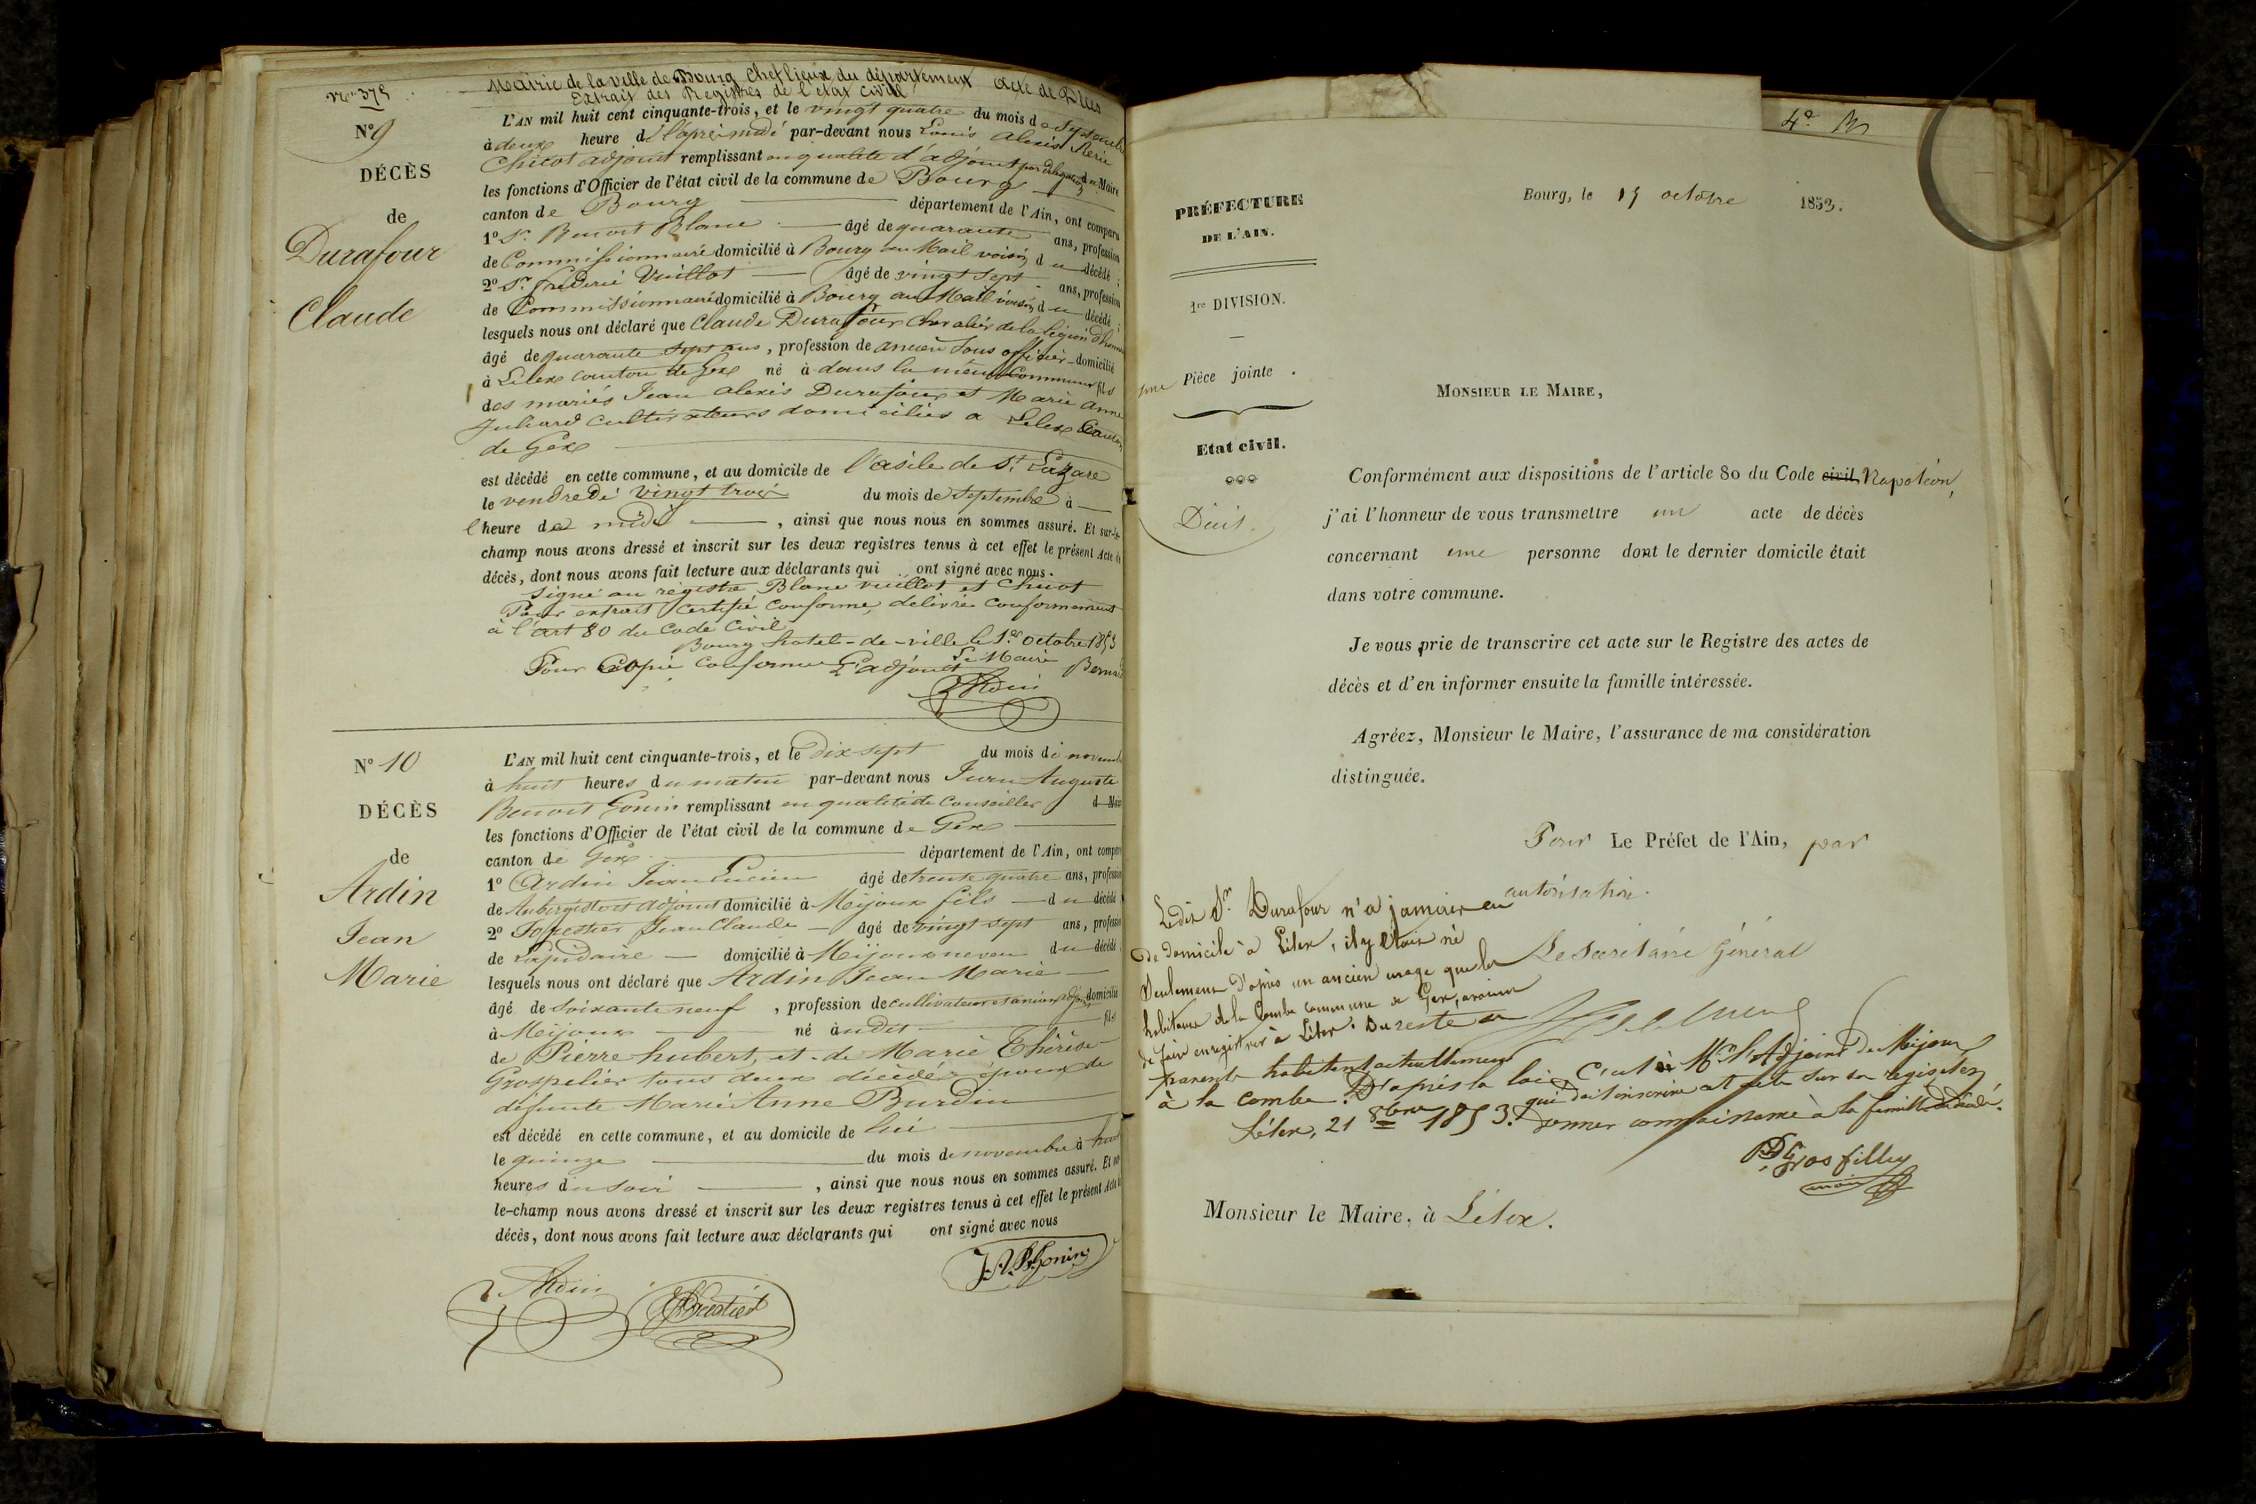 Mairie de la ville de Bourg Chef lieux du département Acte de Décès
Extrait des Registres de l'état civil
No 379
No 9
DÉCÈS
de
Durafour
Claude
L'AN mil huit cent cinquante-trois, et le vingt quatre du mois de Septembre
à deux heure de l'après midi par-devant nous Louis Alexis
Chicot adjoint remplissant en qualité d'adjoint par délégation du Maire
les fonctions d'Officier de l'état civil de la commune de Bourg
canton de Bourg département de l'Ain, ont comparu
1o Sr. Benoit Blanc âgé de quarante ans, profession
de Commissionnaire domicilié à Bourg au Mail voisin du décédé;
2o Sr. fréderic Vuillot âgé de vingt sept ans, profession
de Commissionnaire domicilié à Bourg au Mail voisin du décédé;
lesquels nous ont déclaré que Claude Durafour Chevalier de la légion d'honneur
âgé de quarante sept ans, profession de ancien Sous officier domicilié
à Lelex canton de Gex né à dans la même Commune fils
des mariés Jean alexis Durafour et Marie Anne
Juhard cultivateurs domiciliés a Lelex Canton
de Gex
est décédé en cette commune, et au domicile de l'asile de St. Lazare
le vendredi vingt trois du mois de septembre à
l'heure de midi, ainsi que nous nous en sommes assuré. Et sur-le-
champ nous avons dressé et inscrit sur les deux registres tenus à cet effet le présent Acte de
décès, dont nous avons fait lecture aux déclarants qui ont signé avec nous.
Signé au registre Blanc vuillot et Chicot
Pour extrait certifié conforme, délivré conformément
à l'art 80 du Code Civil
Bourg hotel-de-ville le 1er octobre 1853
Le Maire Bernard
Pour Copie conforme L'adjoint
Ardin
No 10
DÉCÈS
de
Ardin
Jean
Marie
L'AN mil huit cent cinquante-trois, et le dix sept du mois de novembre
à huit heures du matin par-devant nous Jean Auguste
Benoit Gonin remplissant en qualité de Conseiller d Maire
les fonctions d'Officier de l'état civil de la commune de Gex
canton de Gex département de l'Ain, ont comparu
1o Ardin Jean Lucien âgé de trente quatre ans, profession
de Aubergiste et adjoint domicilié à Mijoux fils du décédé
2o Forestier Jean Claude âgé de vingt sept ans, profession
de Lapidaire domicilié à Mijoux neveu du décédé
lesquels nous ont déclaré que Ardin Jean Marie
âgé de soixante neuf, profession de cultivateur et ancien adjt domicilié
à Mijoux né audit fils
de Pierre hubert, et de Marie Thérèse
Grospelier tous deux décédés époux de
défunte Marie Anne Burdin
est décédé en cette commune, et au domicile de lui
le quinze du mois de novembre à huit
heures du soir, ainsi que nous nous en sommes assuré. Et sur-
le-champ nous avons dressé et inscrit sur les deux registres tenus à cet effet le présent Acte de
décès, dont nous avons fait lecture aux déclarants qui ont signé avec nous
J. A. Bt Gonin
Ardin
Forestier
4o
PRÉFECTURE
DE L'AIN.
1re DIVISION.
une Pièce jointe.
Etat civil.
Décès.
Bourg, le 15 octobre 1853.
MONSIEUR LE MAIRE,
Conformément aux dispositions de l'article 80 du Code civil Napoléon,
j'ai l'honneur de vous transmettre un acte de décès
concernant une personne dont le dernier domicile était
dans votre commune.
Je vous prie de transcrire cet acte sur le Registre des actes de
décès et d'en informer ensuite la famille intéressée.
Agréez, Monsieur le Maire, l'assurance de ma considération
distinguée.
Pour Le Préfet de l'Ain, par
autorisation.
Le Secrétaire Général
Ledit Sr. Durafour n'a jamais eu
de domicile à Lélex, il y était né
Seulement d'après un ancien usage que les
habitans de la Combe commune de Gex, avaient
de faire enregistrer à Lélex. Du reste ses
parents habitent actuellement
à la Combe. D'après la loi, C'est à Mr. l'Adjoint de Mijoux
qui doit inscrire cet acte sur ses registres
donner connaissance à la famille du décédé.
Lélex, 21 8bre 1853.
Grosfilley
maire
Monsieur le Maire, à Lélex.